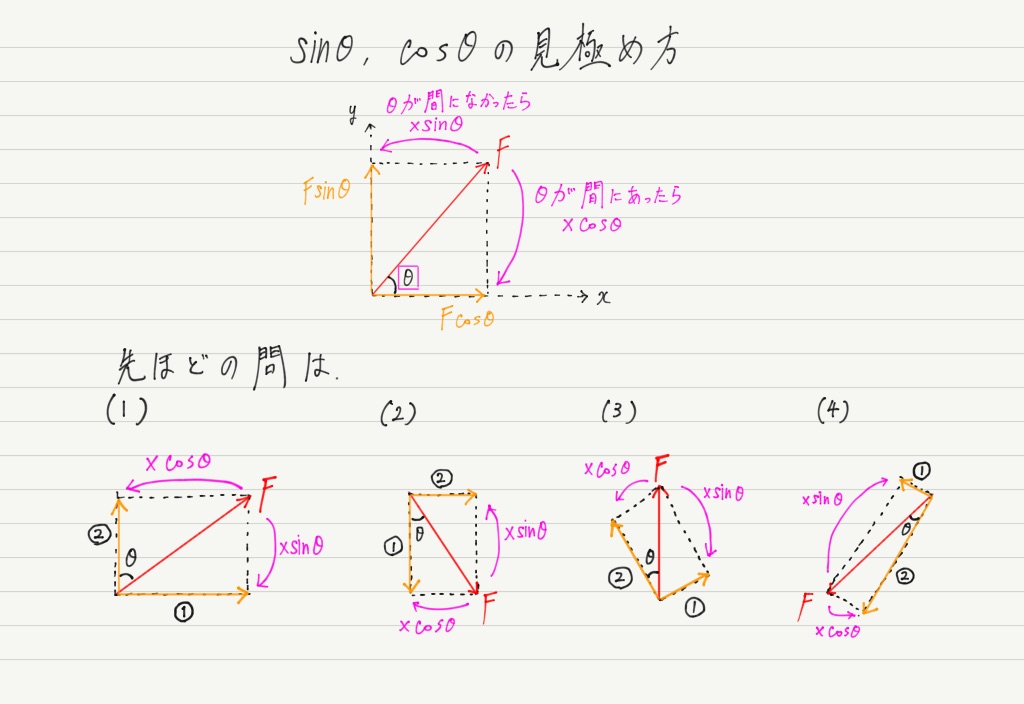 sinθ, cosθの見極め方
y
θが間になかったら
×sinθ
F
Fsinθ
θが間にあったら
×cosθ
θ
x
Fcosθ
先ほどの問は.
(1)
×cosθ
F
②
θ
×sinθ
①
(2)
②
θ
①
×sinθ
F
×cosθ
(3)
×cosθ
F
×sinθ
θ
②
①
(4)
①
×sinθ
θ
②
F
×cosθ